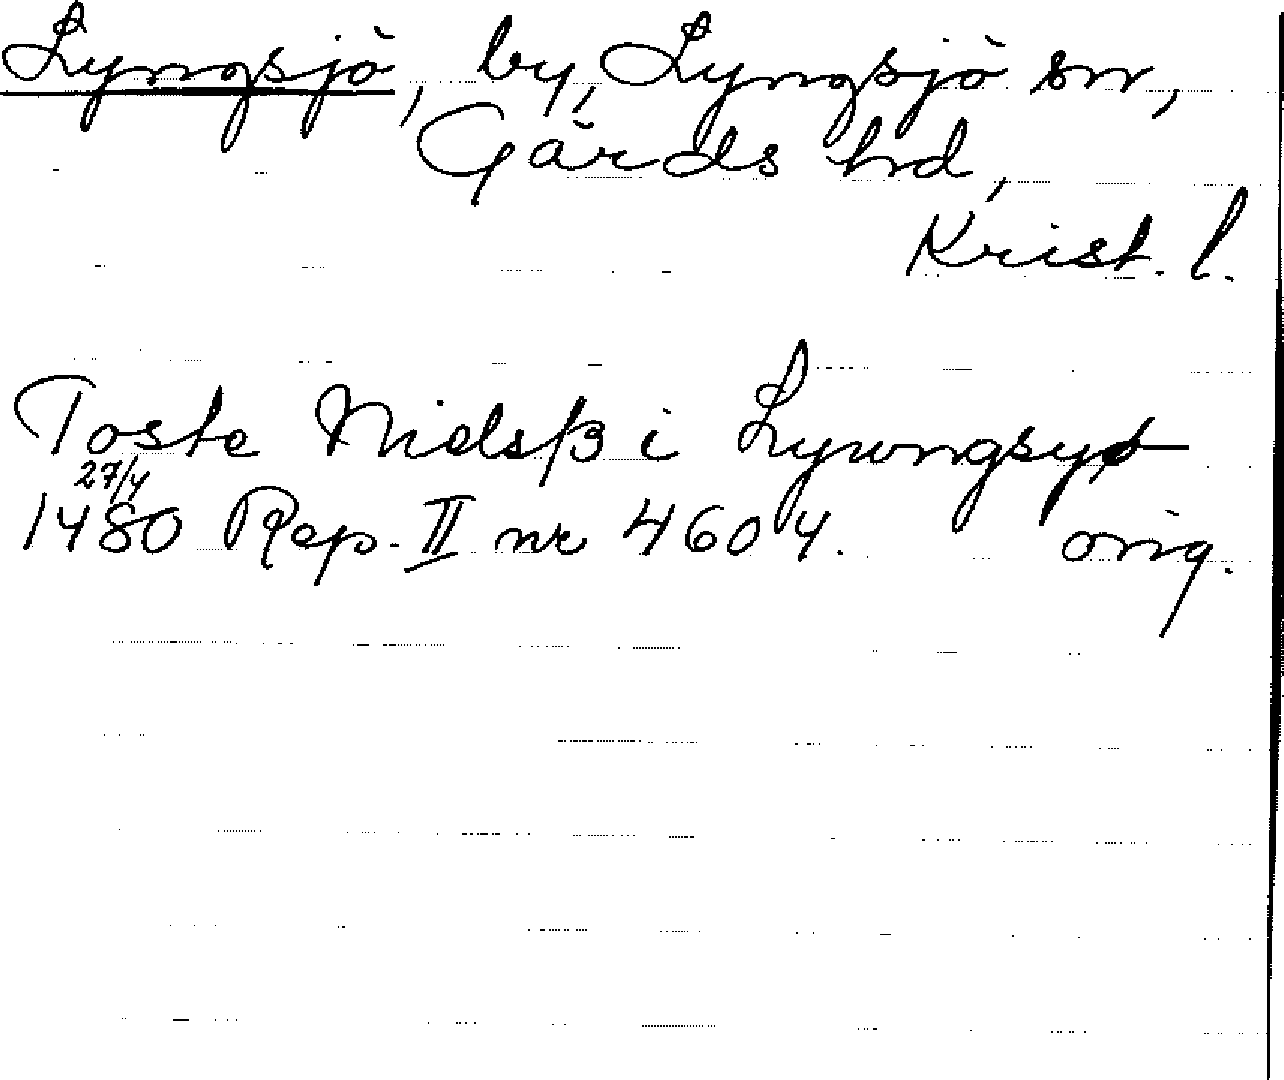 Lyngsjö, by, Lyngsjö sn,
Gärds hd,
Krist. l.
Toste Nielsß i Lywngsyø
27/4
1480 Rep. II nr 4604. orig.